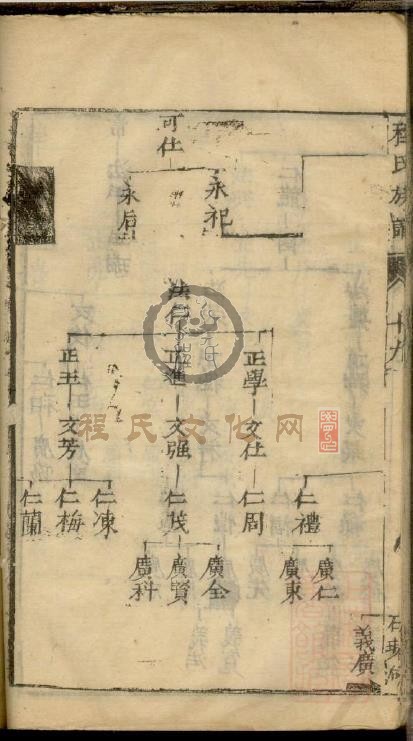 程氏族譜
十九
可仕
永祀
永后
法仁
正學
正進
正王
文仕
文强
文芳
仁禮
仁周
仁茂
仁凍
仁梅
仁蘭
廣仁
廣東
廣全
廣賢
廣科
義廣
程氏文化网